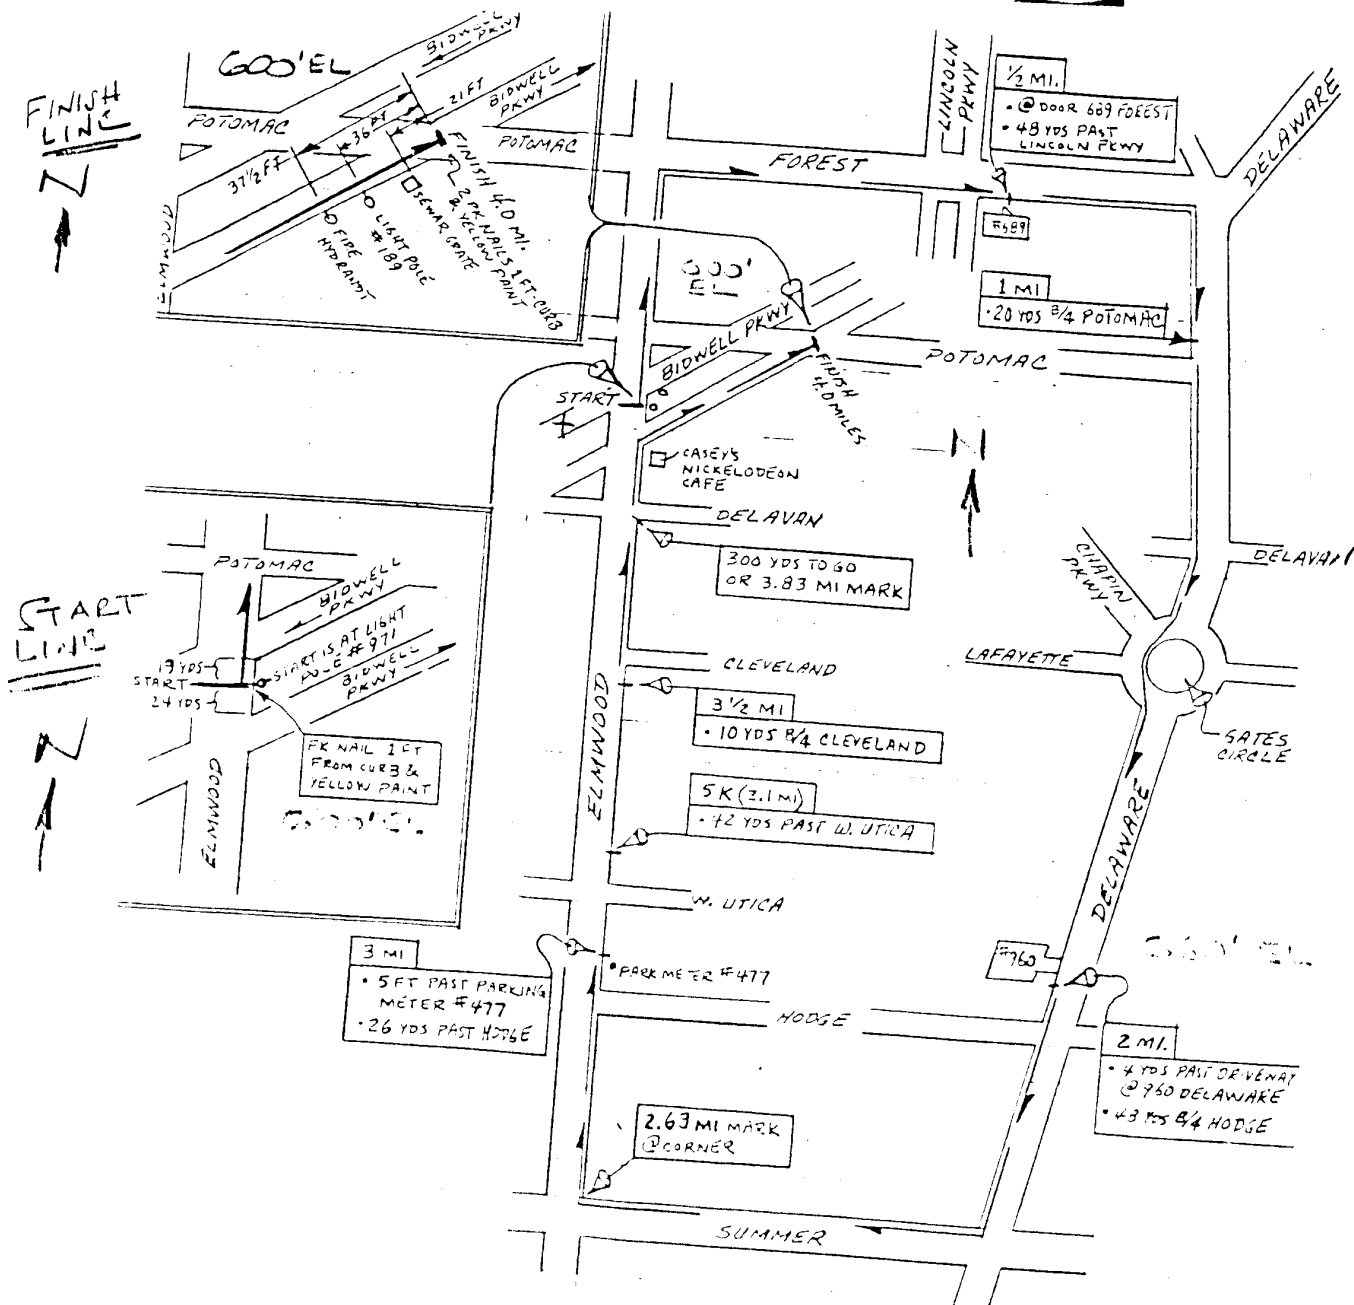 600'EL
FINISH
LINE
N
POTOMAC
BIDWELL
PKWY
21 FT
BIDWELL
PKWY
POTOMAC
37 1/2 FT
ELMWOOD
FIRE
HYDRANT
LIGHT POLE
#189
SEWAR GRATE
FINISH 4.0 MI.
2 PK NAILS 1 FT-CURB
& YELLOW PAINT
LINCOLN
PKWY
1/2 MI.
• @ DOOR 689 FOREST
• 48 YDS PAST
LINCOLN PKWY
DELAWARE
FOREST
#689
600'
1 MI
• 20 YDS B/4 POTOMAC
POTOMAC
BIDWELL PKWY
START
FINISH
4.0 MILES
N
CASEY'S
NICKELODEON
CAFE
DELAVAN
300 YDS TO GO
OR 3.83 MI MARK
CHAPIN
PKWY
DELAVAN
LAFAYETTE
GATES
CIRCLE
START
LINE
N
POTOMAC
BIDWELL
PKWY
START IS AT LIGHT
POLE #971
BIDWELL
PKWY
19 YDS
START
24 YDS
PK NAIL 1 FT
FROM CURB &
YELLOW PAINT
ELMWOOD
600' EL.
CLEVELAND
3 1/2 MI
• 10 YDS B/4 CLEVELAND
ELMWOOD
5K (3.1 MI)
• 42 YDS PAST W. UTICA
W. UTICA
DELAWARE
600' EL.
#960
3 MI
• 5 FT PAST PARKING
METER #477
• 26 YDS PAST HODGE
• PARK METER #477
HODGE
2 MI.
• 4 YDS PAST DRIVEWAY
@ 960 DELAWARE
• 43 YDS B/4 HODGE
2.63 MI MARK
@ CORNER
SUMMER